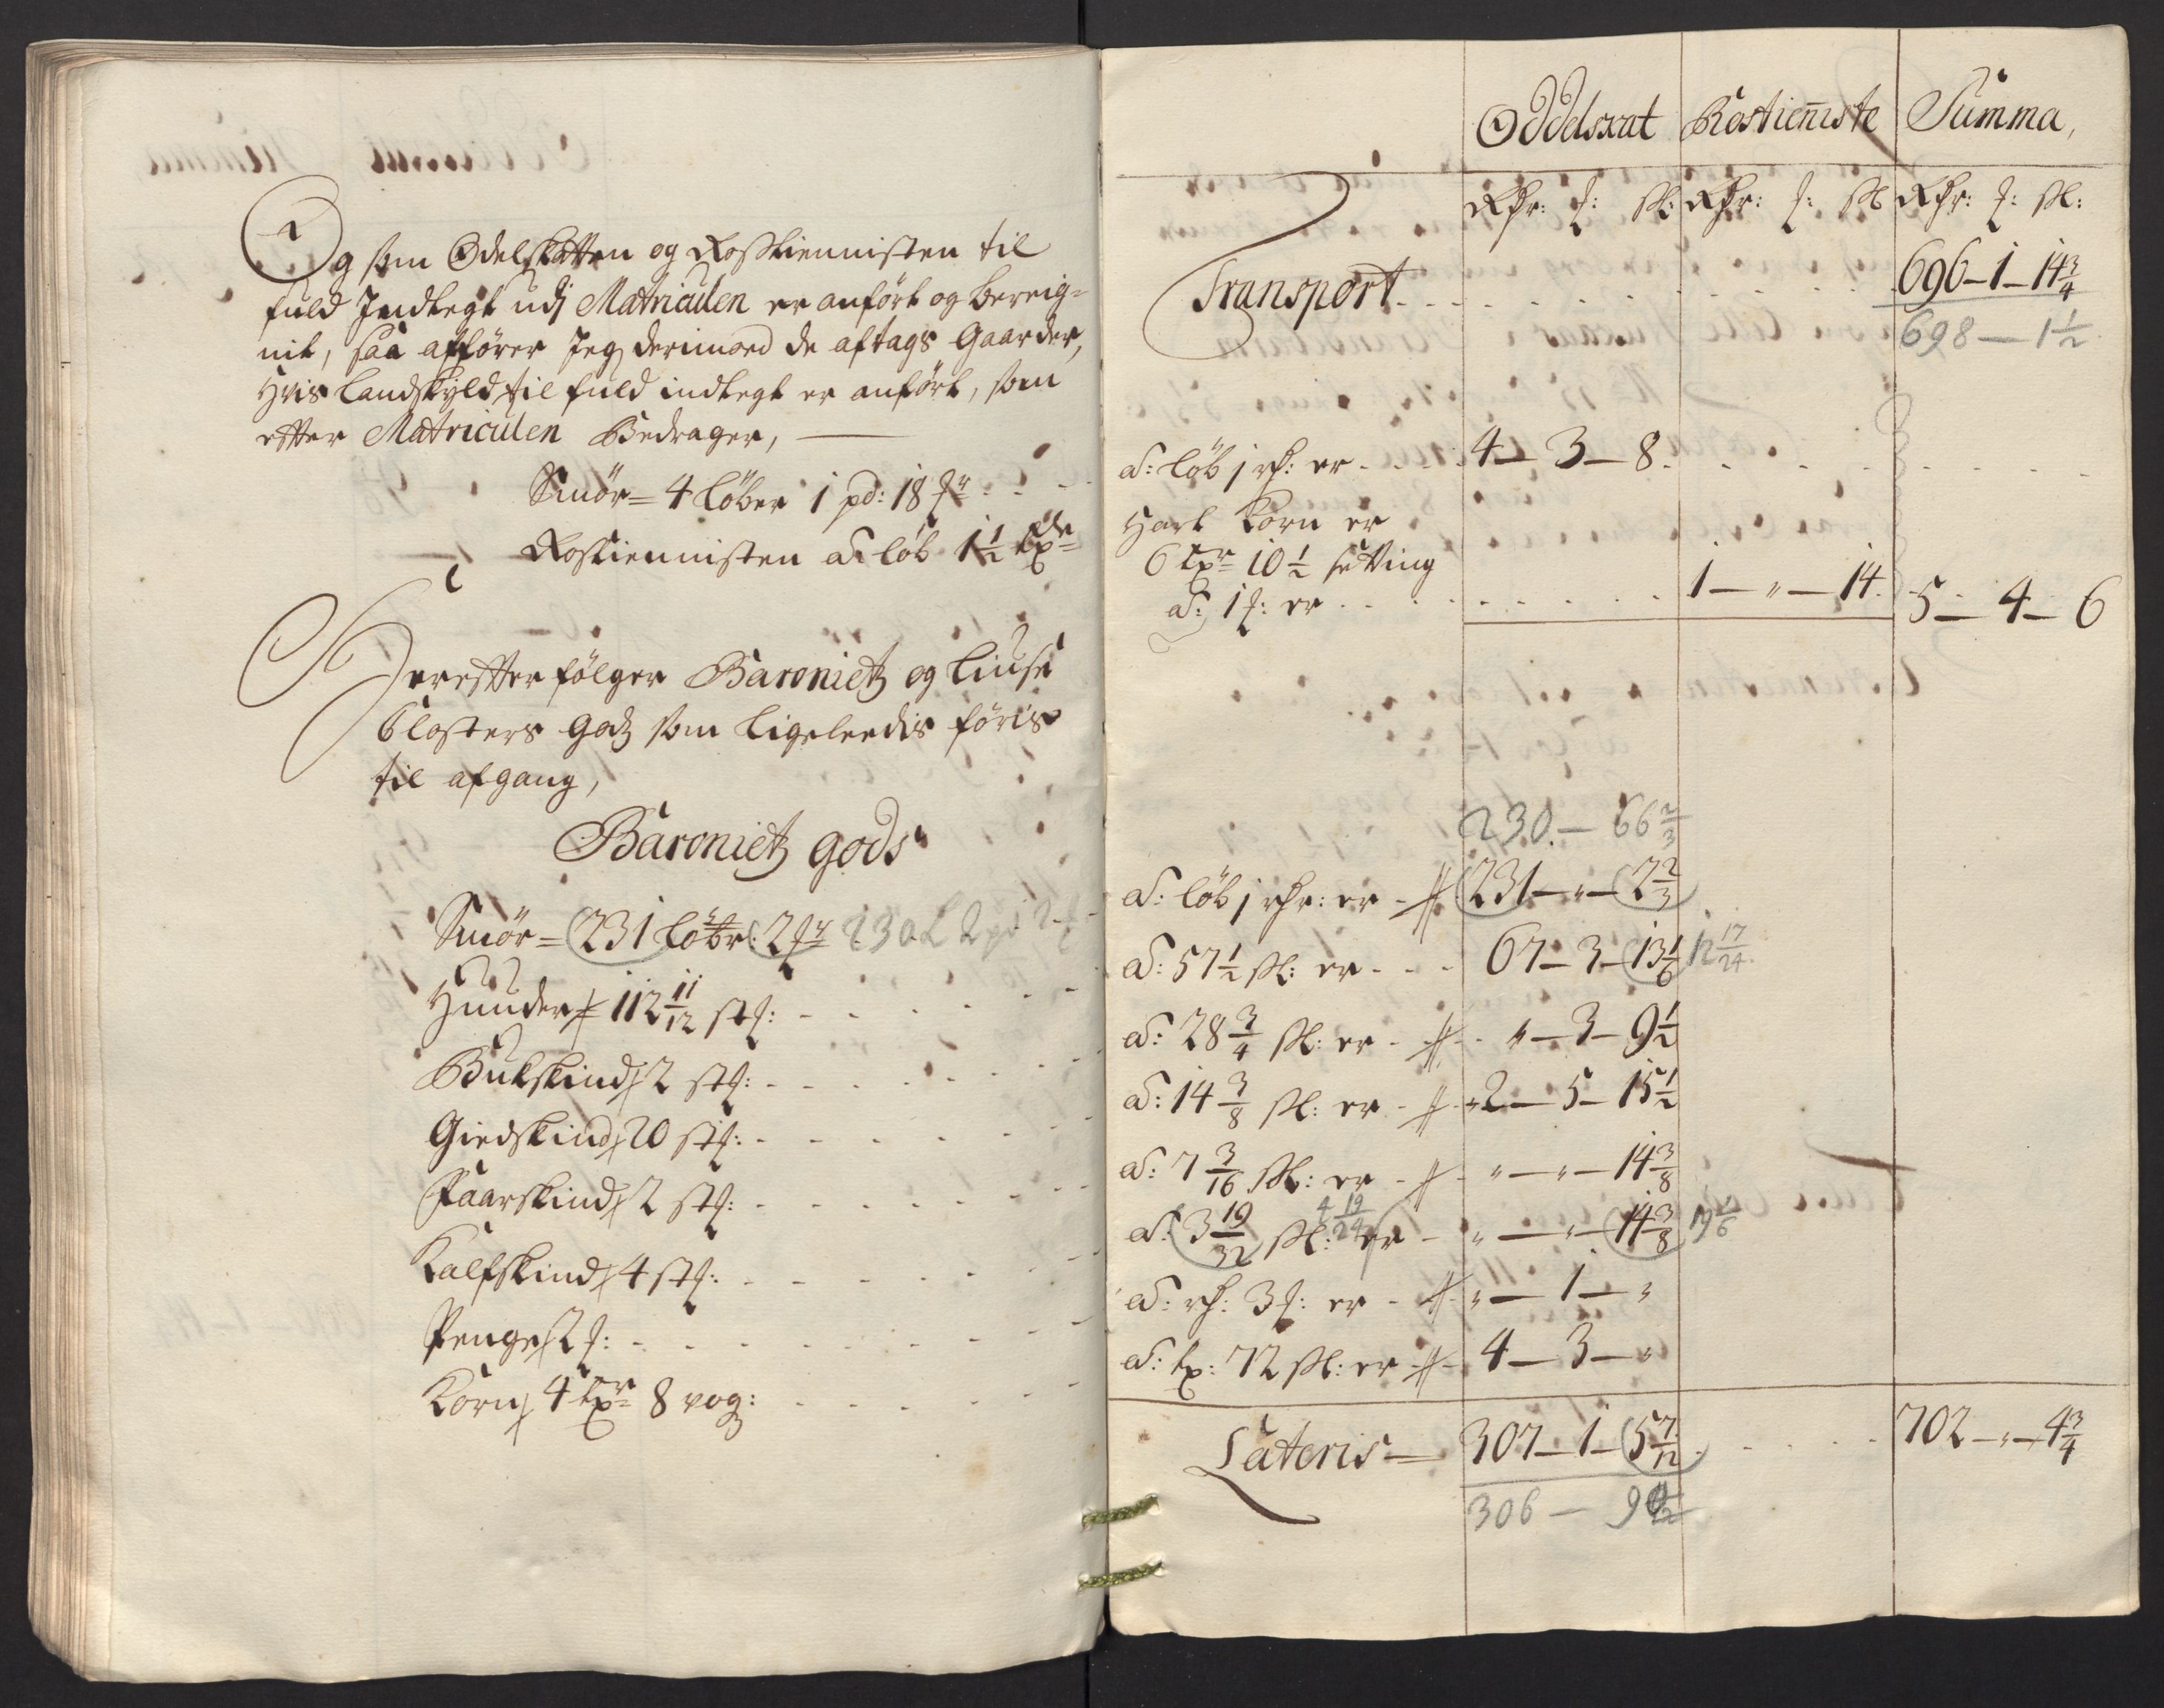 Og som Odelskatten og Rosstiennisten til
fuld Indtegt udj Matriculen er anført og bereig-
nit, saa affører Jeg derimod de aftags Gaarder,
hvis Landskyld til fuld indtegt er anført, som
effter Matriculen Bedrager,
Smör= 4 Löber 1 pd: 18 
Rostiennisten a Löb 1 1/2 
Dereffter fölger Baroniets og Liuse
Closters gods som Ligeleedis föris
til afgang,
Baroniets gods
Smör= 231 Löbr: 2  230 L 2 pd
Huuder 112 11/12 stk:
Bukskind 2 stk:
Giedskind 20 stk:
Faarskind 2 stk:
Kalfskind 4 stk:
Penge 2 
Korn 4 tdr 8 vog:
Oddelsxat Rostienniste Summa,
Rdr: : sk: Rdr: : sk Rdr: : sk:
Transport 696-1-14 3/4
698 - 1 1/2
a: Löb 1 rd: er 4-3-8
Hart Korn er
6 tdr 10 1/2 setting
a: 1 : er 1-"-14 5-4-6
230 - 66 2/3
a: Löb 1 rdr: er 231-"-2 2/3
a: 57 1/2 sk: er 67-3-13 1/6 12 17/24
a: 28 3/4 sk: er "-3-9 1/2
a: 14 3/8 sk: er 2-5-15 1/2
a: 7 3/16 sk: er "-"-14 3/8
4 19/24
a: 3 19/32 sk: er "-"-14 3/8 19 1/6
a: rd: 3 : er "-1-"
a: td: 72 sk: er 4-3-"
Lateris 307-1-5 7/12 702-"-4 3/4
306 - 9